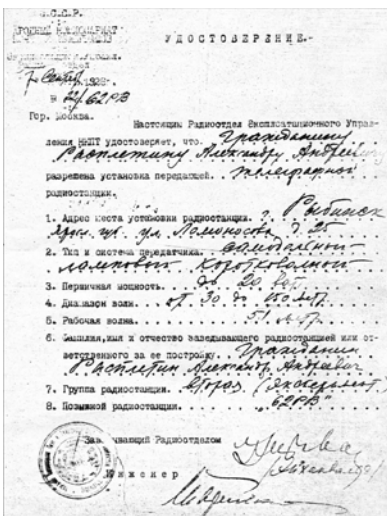 С.С.С.Р.
НАРОДНЫЙ КОМИССАРИАТ
УДОСТОВЕРЕНИЕ.-
62РВ
Гор. Москва.
Настоящим Радиоотдел Эксплоатационного Управ-
ления НКПТ удостоверяет, что. Гражданину
Расплетину Александру Андреев
разрешена установка передающей. телеграфной
радиостанции.
1. Адрес места установки радиостанции. г. Рыбинск
ул. Ломоносова д. 25
2. Тип и система передатчика. самодельный
ламповый коротковолновый
3. Первичная мощность. до 20 ват.
4. Диапазон волн. от 30 до 150 метр.
5. Рабочая волна. 51 метр.
6. Фамилия, имя и отчество заведывающего радиостанцией или от-
ветственного за ее постройку. Гражданин
Расплетин Александр Андреевич
7. Группа радиостанции. вторая
8. Позывной радиостанции. "62РВ"
Радиоотделом
Инженер